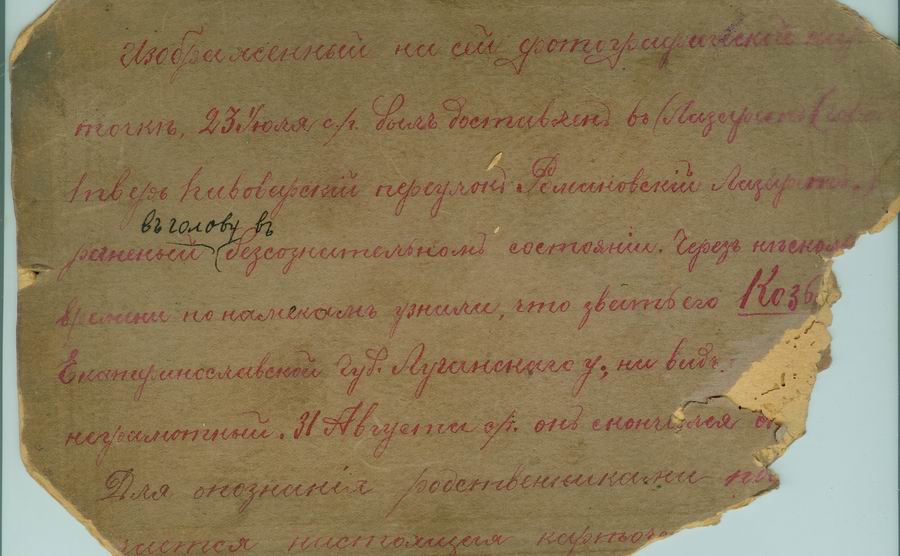 Изображенный на сей фотографической кар
точкѣ, 23 Iюля с/г. былъ доставленъ въ Лазаретъ
Тверь Пивоварскій переулокъ Романовскій Лазаретъ.
въ голову въ
раненый безсознательномъ состояніи. Черезъ нѣскол
времени по намекамъ узнали, что звать его Козь
Екатеринославской Губ. Луганскаго у, на видъ
неграмотный. 31 Августа с/г. онъ скончался
Для опознанія родственниками
чается настоящая карточ